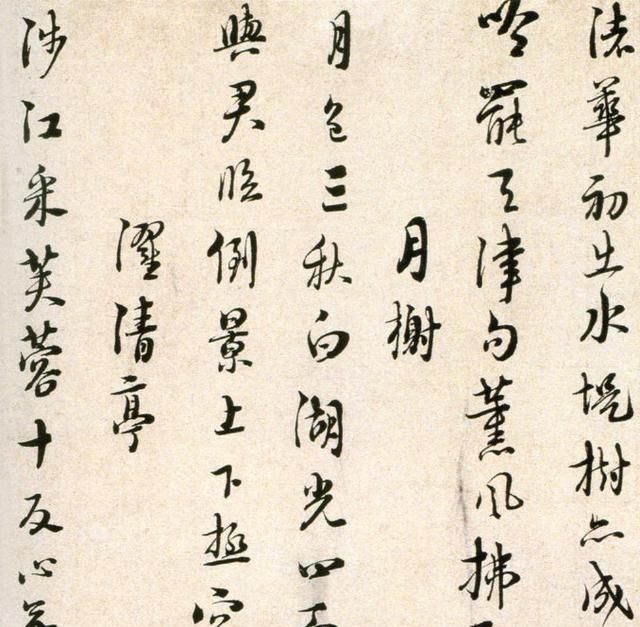 渚華初出水堤樹亦成
吟罷天津句薰風拂
月榭
月色三秋白湖光四
與君臨倒景上下極
濯清亭
涉江采芙蓉十反心